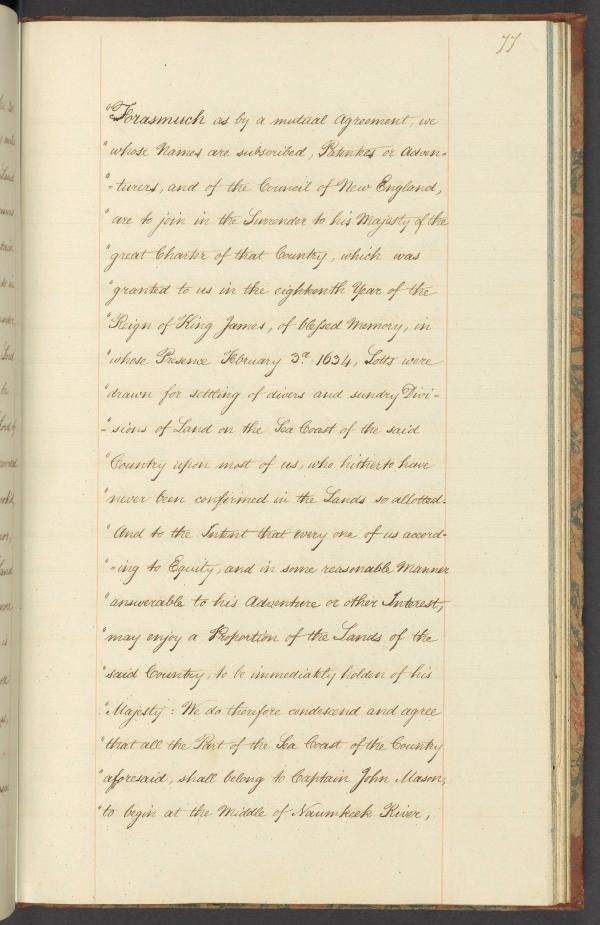 77
"Forasmuch as by a mutual Agreement, we
"whose Names are subscribed, Patentees or Adven-
"-turers, and of the Council of New England,
"are to join in the Surrender to his Majesty of the
"great Charter of that Country, which was
"granted to us in the eighteenth Year of the
"Reign of King James, of blessed Memory, in
"whose Presence February 3d. 1634, Lotts were
"drawn for settling of divers and sundry Divi-
"-sions of Land on the Sea Coast of the said
"Country upon most of us, who hitherto have
"never been confirmed in the Lands so allotted.
"And to the Intent that every one of us accord-
"-ing to Equity, and in some reasonable Manner
"answerable to his Adventure or other Interest,
"may enjoy a Proportion of the Lands of the
"said Country, to be immediately holden of his
"Majesty: We do therefore condescend and agree
"that all the Part of the Sea Coast of the Country
"aforesaid, shall belong to Captain John Mason,
"to begin at the Middle of Naumkeek River,